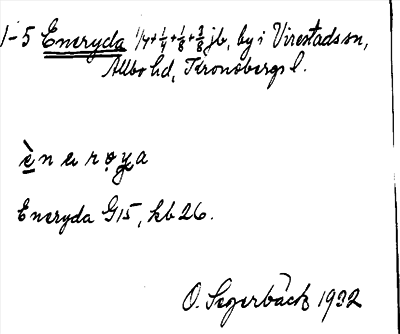 1-5 Eneryda 1/4+1/4+1/8+3/8 jb, by i Virestads sn,
Allbo hd, Kronobergs l.
è̱n ɯ rø̣ya
Eneryda G15, kb 26.
O. Segerbäck 1932